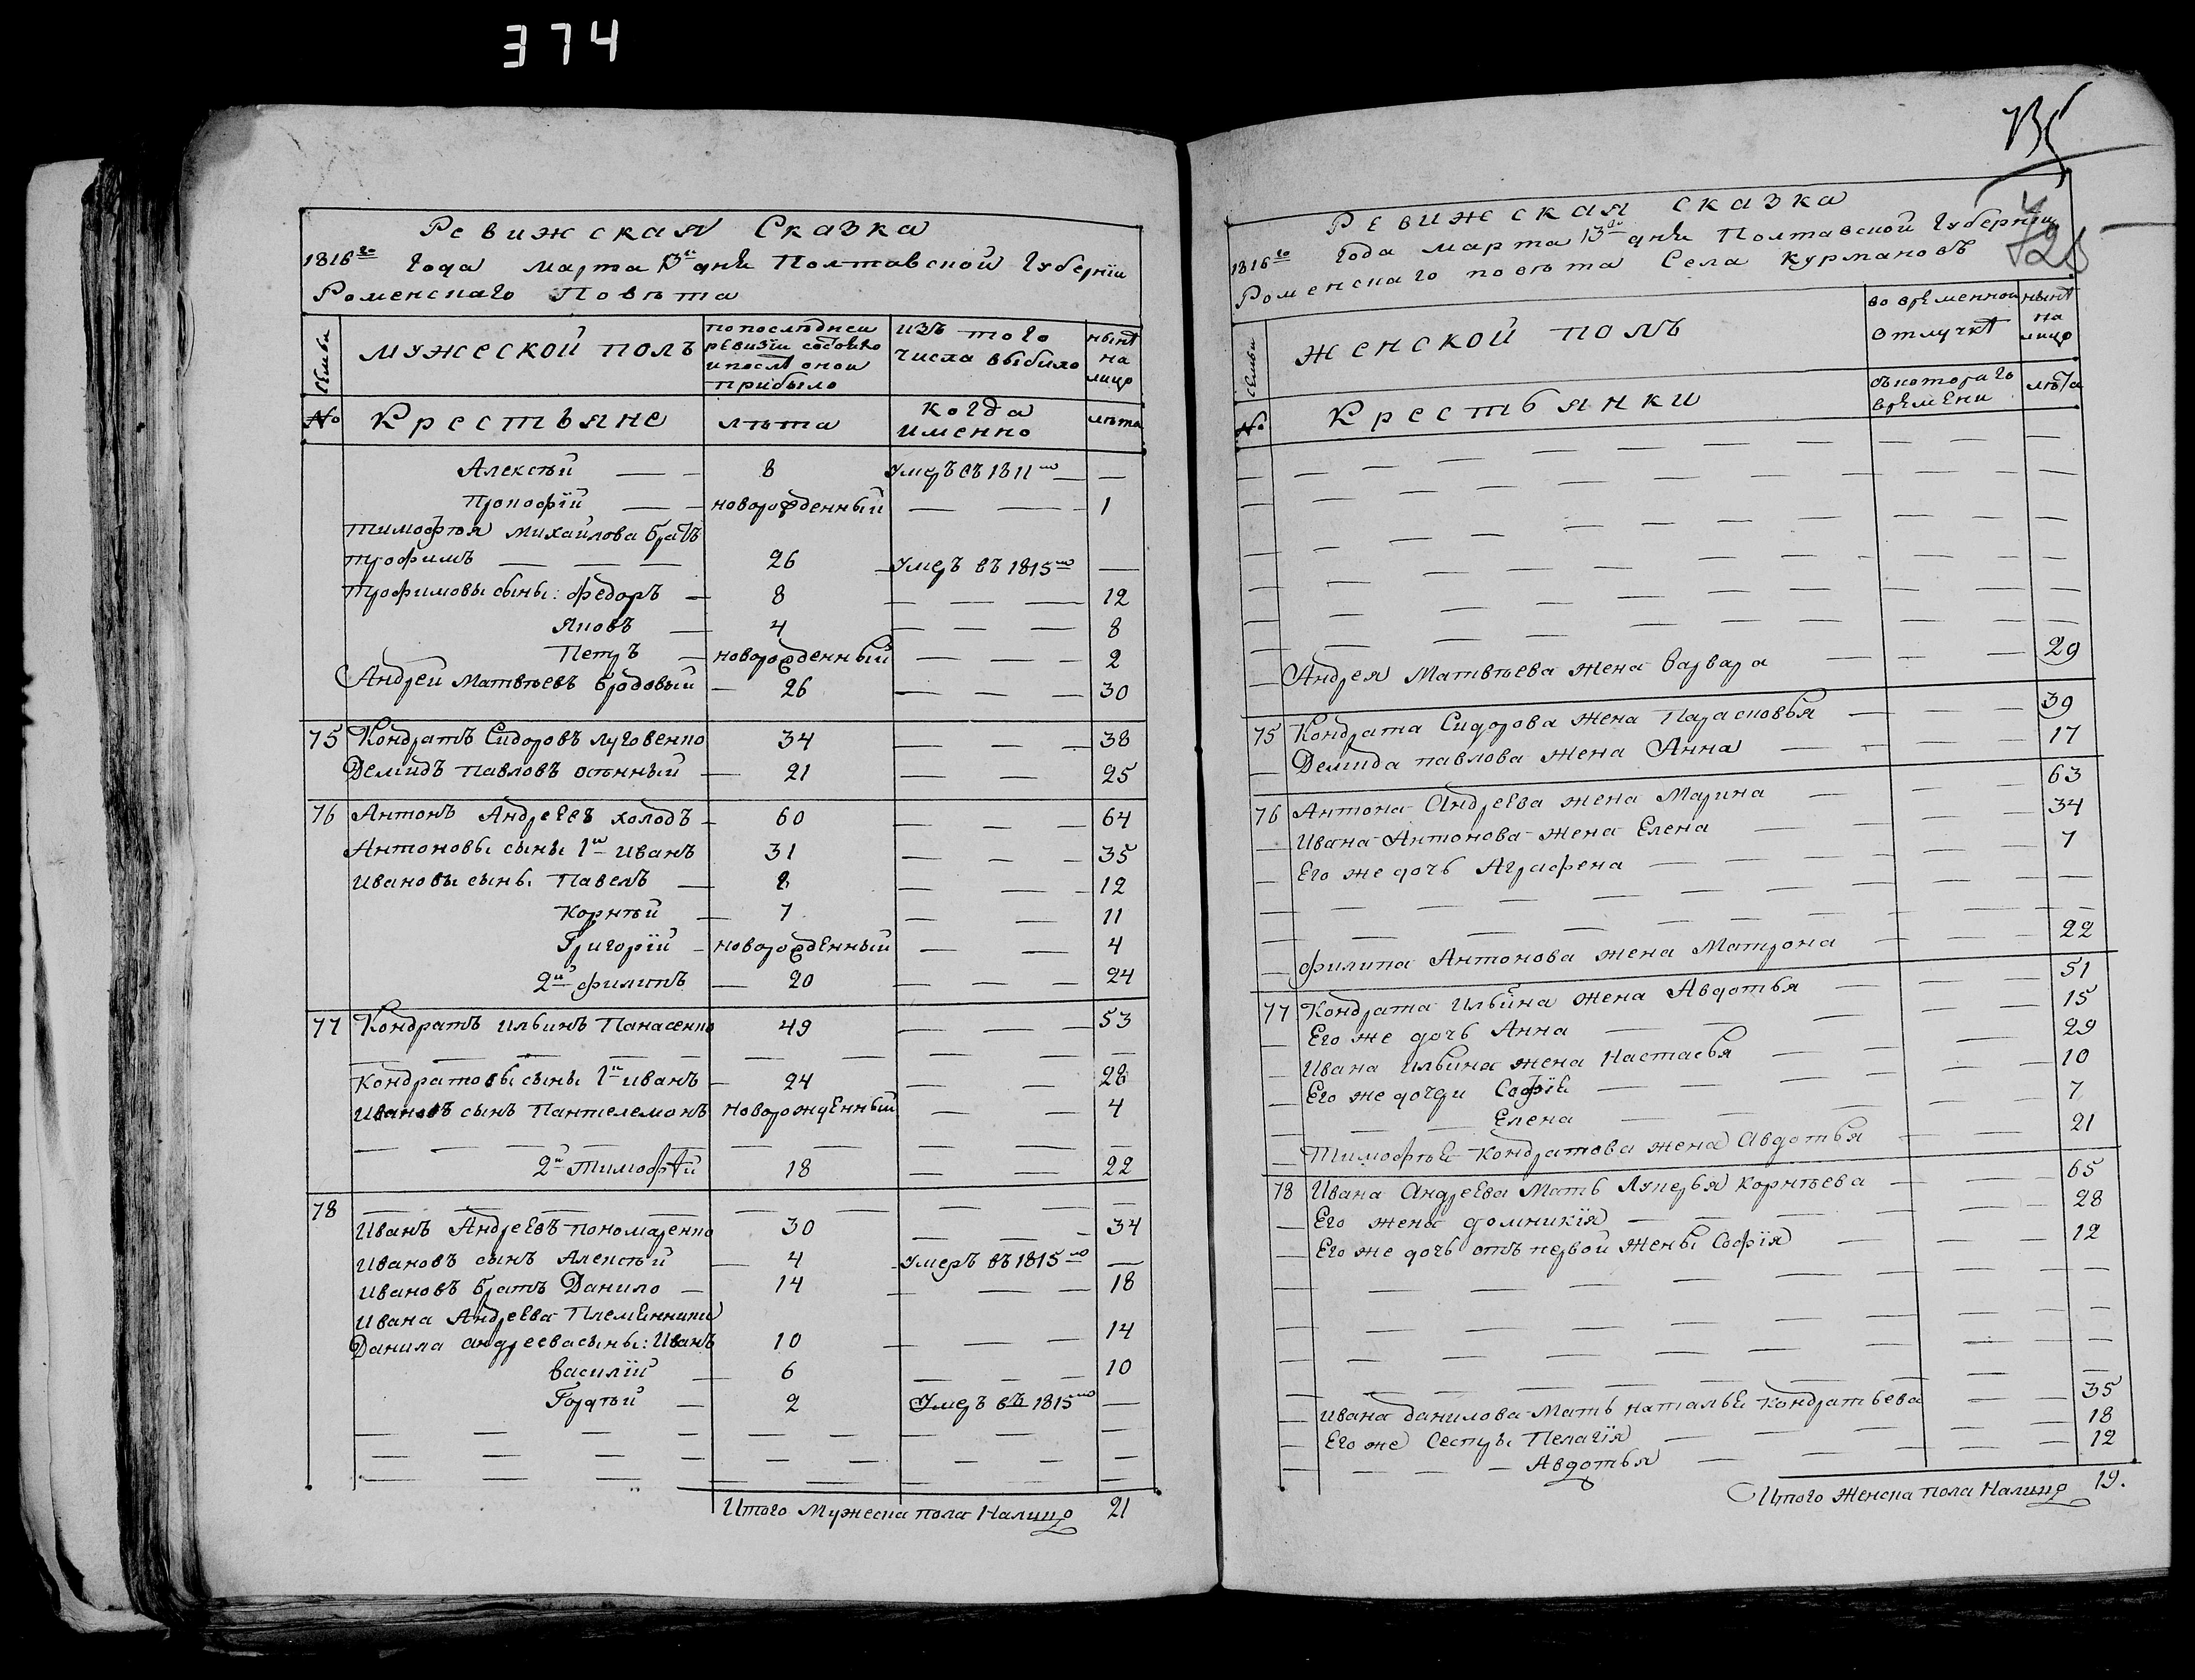 374
Ревижская Сказка
1816го Года Марта 13го дня Полтавской Губернїи
Роменскаго Повѣта
Семьи
мужеской полъ
по последней
ревизїи состояло
и послѣ оной
прибыло
изъ того
числа выбыло
нынѣ
на
лицо
№
Крестьяне
лѣта
когда
именно
лѣта
Алексѣй — — 8 Умеръ въ 1811мъ — —
Прокофїй — — новорожденный — — — 1
Тимофѣя Михайлова братъ
Трофимъ — — — 26 Умеръ въ 1815мъ —
Трофимовы сыны: Федоръ — 8 — — — 12
Яковъ — 4 — — — 8
Петръ — новорожденный — — — 2
Андрей Матвѣевъ Бродовый — 26 — — — 30
75 Кондратъ Сидоровъ Луговенко 34 — — — 38
Демидъ Павловъ Осѣнный — 21 — — 25
76 Антонъ Андреевъ Холодъ — 60 — — — 64
Антоновы сыны 1й Иванъ 31 — — — 35
Ивановы сыны Павелъ — 8 — — — 12
Корнѣй — 7 — — 11
Григорїй — новорожденный — — 4
2й Филипъ — 20 — — — 24
77 Кондратъ Ильинъ Панасенко 49 — — — 53
— — — — — — — — — — —
Кондратовы сыны 1й Иванъ — 24 — — 28
Ивановъ сынъ Пантелемонъ новорожденный — — 4
— — — — — — — — — —
2й Тимофѣй 18 — — 22
78 — — — — — — — — —
Иванъ Андреевъ Пономаренко 30 — — — 34
Ивановъ сынъ Алексѣй — 4 Умеръ въ 1815мъ —
Ивановъ братъ Данило — 14 — — — 18
Ивана Андреева Племянники
Данила Андреева сыны: Иванъ 10 — — — 14
Василїй — 6 — — — 10
Гордѣй — 2 Умеръ въ 1815мъ —
— — — — — — — — — —
— — — — — — — — — —
— — — — — — — — — —
Итого Мужеска пола Налицо 21
Ревижская сказка
1816го Года марта 13го дня Полтавской Губернїи
Роменскаго повѣта Села Курмановъ
семьи
женской полъ
во временной
отлучкѣ
нынѣ
на
лицо
№
Крестьянки
съ котораго
времени
лѣта
— — — — — — — —
— — — — — — — —
— — — — — — — —
— — — — — — — —
— — — — — — — —
— — — — — — — —
— Андрея Матвѣева жена Варвара — — — 29
75 Кондрата Сидорова жена Парасковья — — — 39
— Демида Павлова жена Анна — — — 17
76 Антона Андреева жена Марина — — — 63
— Ивана Антонова жена Елена — — — 34
— Его же дочь Аграфена — — — 7
— — — — — — — —
— — — — — — — —
— Филипа Антонова жена Матрона — — — 22
77 Кондрата Ильина жена Авдотья — — — 51
— Его же дочь Анна — — — 15
— Ивана Ильина жена Настасья — — — 29
— Его же дочери Софїя — — — 10
— — — Елена — — — 7
— Тимофѣя Кондратова жена Авдотья — — 21
78 Ивана Андреева Мать Лукерья Корнѣева — — 65
— Его жена Домникїя — — — 28
— Его же дочь отъ первой жены Софїя — — — 12
— — — — — — — —
— — — — — — — —
— — — — — — — —
— — — — — — — —
— Ивана Данилова Мать Наталья Кондратьева — — 35
— Его же Сестры Пелагїя — — — 18
— — — — Авдотья — — — 12
Итого Женска пола Налицо 19.